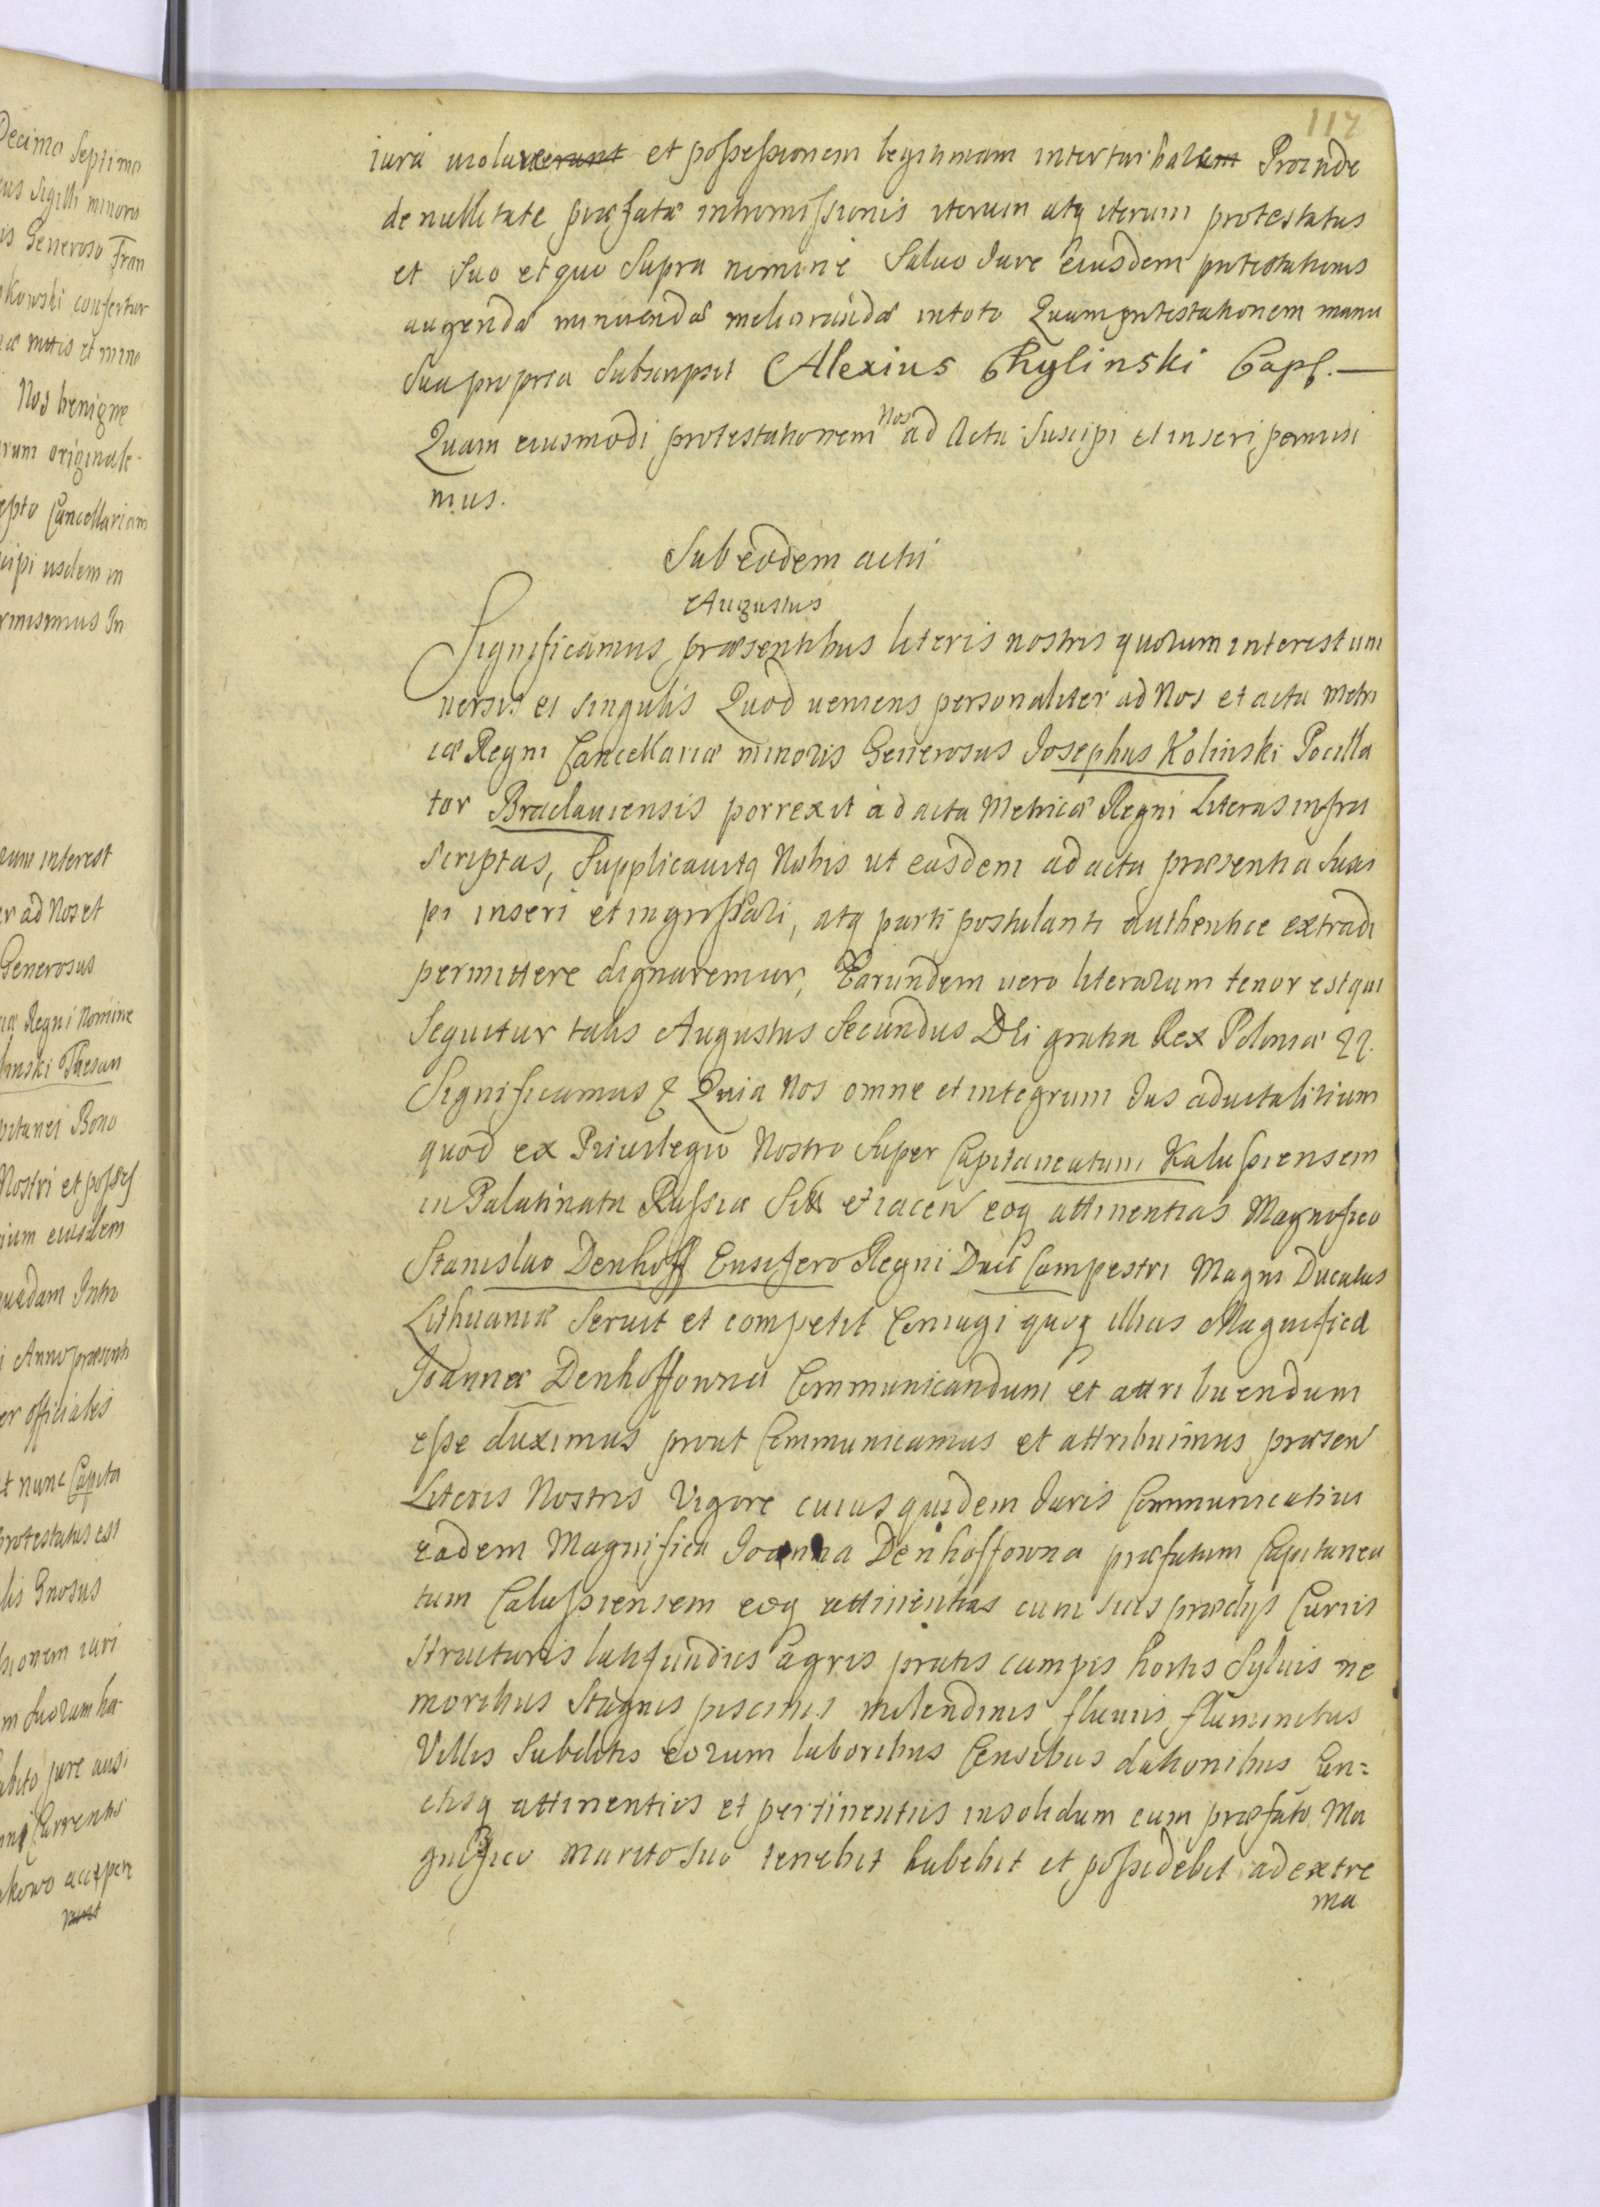 Decimo Septimo
Sigilli minoris
Generoso Fran
kowski confertur
Nos benigne
originale
Cancellariam
usdem in
In
interest
ad Nos et
Generosus
Regni Nomine
linski Thesau
Bono
Nostri et posses
eiusdem
Intro
Anno
officiales
nunc Capita
protestatus est
Gnosus
iuri
suorum ha
jure ausi
Currentis
accepere
runt
117
iura violaverunt et possessionem legitimam inturbarunt Proinde
de nullitate præfatæ intromissionis iterum atq iterum protestatus
et suo et quo supra nomine Saluo Jure eiusdem protestationis
augendæ minuendæ meliorandæ intoto Quam protestationem manu
sua propria subscripsit Alexius Chylinski Caps.—
Quam eiusmodi protestationem Nos ad Acta Suscipi et inseri permisi
mus.
Sub eodem actu
Augustus
Significamus præsentibus literis nostris quorum interest uni
uersis et singulis Quod veniens personaliter ad Nos et acta Metri
cæ Regni Cancellariæ minoris Generosus Josephus Kolinski Pocilla
tor Braclaviensis porrexit ad acta Metricæ Regni Literas infra
scriptas, Supplicauitq Nobis ut easdem ad acta præsentia Susci
pi inseri et ingrossari, atq parti postulanti authentice extradi
permittere dignaremur, Earundem vero literarum tenor est qui
Sequitur talis Augustus Secundus Dei gratia Rex Poloniæ &&.
Significamus & Quia Nos omne et integrum Jus aduitalitium
quod ex Priuilegio Nostro Super Capitaneatum Kalussiensem
in Palatinatu Russiæ Sit et iacen eoq attinentias Magnifico
Stanislao Denhoff Ensifero Regni Duci Campestri Magni Ducatus
Lithuaniæ Seruit et competit Coniugi quoq illius Magnificæ
Joannæ Denhoffowna Communicandum et attribuendum
esse duximus prout Communicamus et attribuimus præsen
Literis Nostris Vigore cuius quidem Juris Communicatiui
eadem Magnifica Joanna Denhoffowna præfatum Capitanea
tum Calussiensem eoq attinentias cum suis prædijs Curiis
structuris latifundiis agris pratis campis hortis Syluis ne
moribus Stagnis piscinis molendinis fluuiis fluminibus
Villis Subditis eorum laboribus Censibus dationibus Cun=
ctisq attinentiis et pertinentiis insolidum cum præfato Ma
gnifico marito suo tenebit habebit et possidebit ad extre
ma